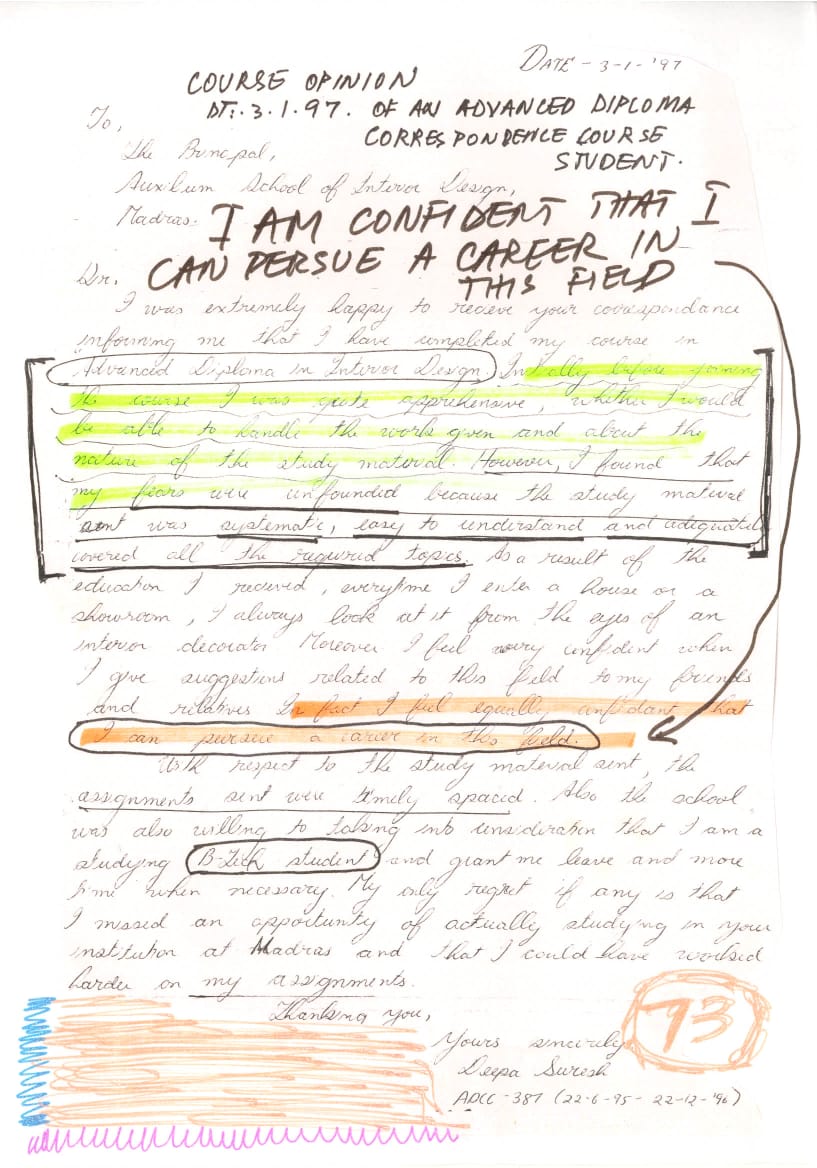 DATE - 3-1-'97
COURSE OPINION
DT:. 3.1.97. OF AN ADVANCED DIPLOMA
CORRESPONDENCE COURSE
STUDENT.
To,
The Principal,
Auxilium School of Interior Design,
Madras.
I AM CONFIDENT THAT I
CAN PERSUE A CAREER IN
THIS FIELD
Sir.
I was extremely happy to recieve your correspondance
informing me that I have completed my course in
Advanced Diploma in Interior Design. Initially before joining
the course I was quite apprehensive, whether I would
be able to handle the work given and about the
nature of the study material. However, I found that
my fears were unfounded because the study material
sent was systematic, easy to understand and adequately
covered all the required topics. As a result of the
education I recieved, everytime I enter a house or a
showroom, I always look at it from the eyes of an
interior decorator. Moreover I feel very confident when
I give suggestions related to this field to my friends
and relatives In fact I feel equally confidant that
I can persue a career in this field.
With respect to the study material sent, the
assignments sent were timely spaced. Also the school
was also willing to taking into consideration that I am a
studying B-Tech student and grant me leave and more
time when necessary. My only regret if any is that
I missed an opportunity of actually studying in your
institution at Madras and that I could have worked
harder on my assignments.
Thanking you,
Yours sincerely
Deepa Suresh
ADCC-387 (22-6-95- 22-12-'96)
73